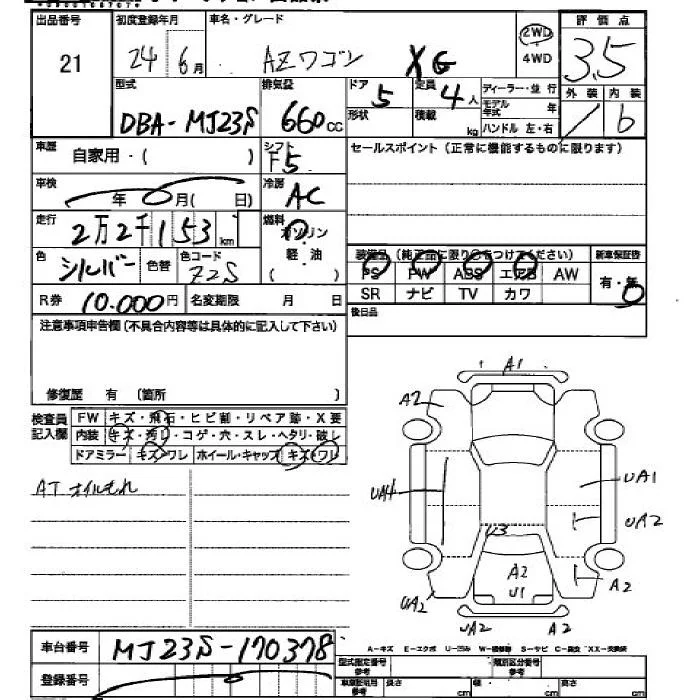 出品番号 初度登録年月 車名・グレード 評価点
21 24 6月 AZワゴン XG 2WD 4WD 3.5
型式 排気量 ドア 定員 ディーラー・並行 外装 内装
DBA-MJ23S 660cc 5 4人 モデル年式 年 b
形状 積載 kg ハンドル 左・右
車歴 自家用・( ) シフト F5 セールスポイント(正常に機能するものに限ります)
車検 年 月( 日) 冷房 AC
走行 2万2千153km 燃料 ガソリン 軽・油 ( )
装備品(純正品に限り○をつけてください) 新車保証書
色 シルバー 色替 色コード Z2S PS PW ABS エアB AW 有・無
R券 10.000円 名変期限 月 日 SR ナビ TV カワ
注意事項申告欄(不具合内容等は具体的に記入して下さい) 後日品
修復歴 有 (箇所 )
検査員記入欄 FW キズ・飛石・ヒビ割・リペア跡・X要
内装 キズ・汚れ・コゲ・穴・スレ・ヘタリ・破レ
ドアミラー キズ・ワレ ホイール・キャップ キズ・ワレ
AT オイルもれ
A1
A2
UA1
UA4
UA2
U3
A2
U1
A2
UA2
UA2 A2
車台番号 MJ23S-170378
A-キズ E-エクボ U-凹み W-補修跡 S-サビ C-腐食 XX-交換済
登録番号 型式指定番号 参考 類別区分番号 参考
車庫証明用 参考 長さ cm 幅 cm 高さ cm